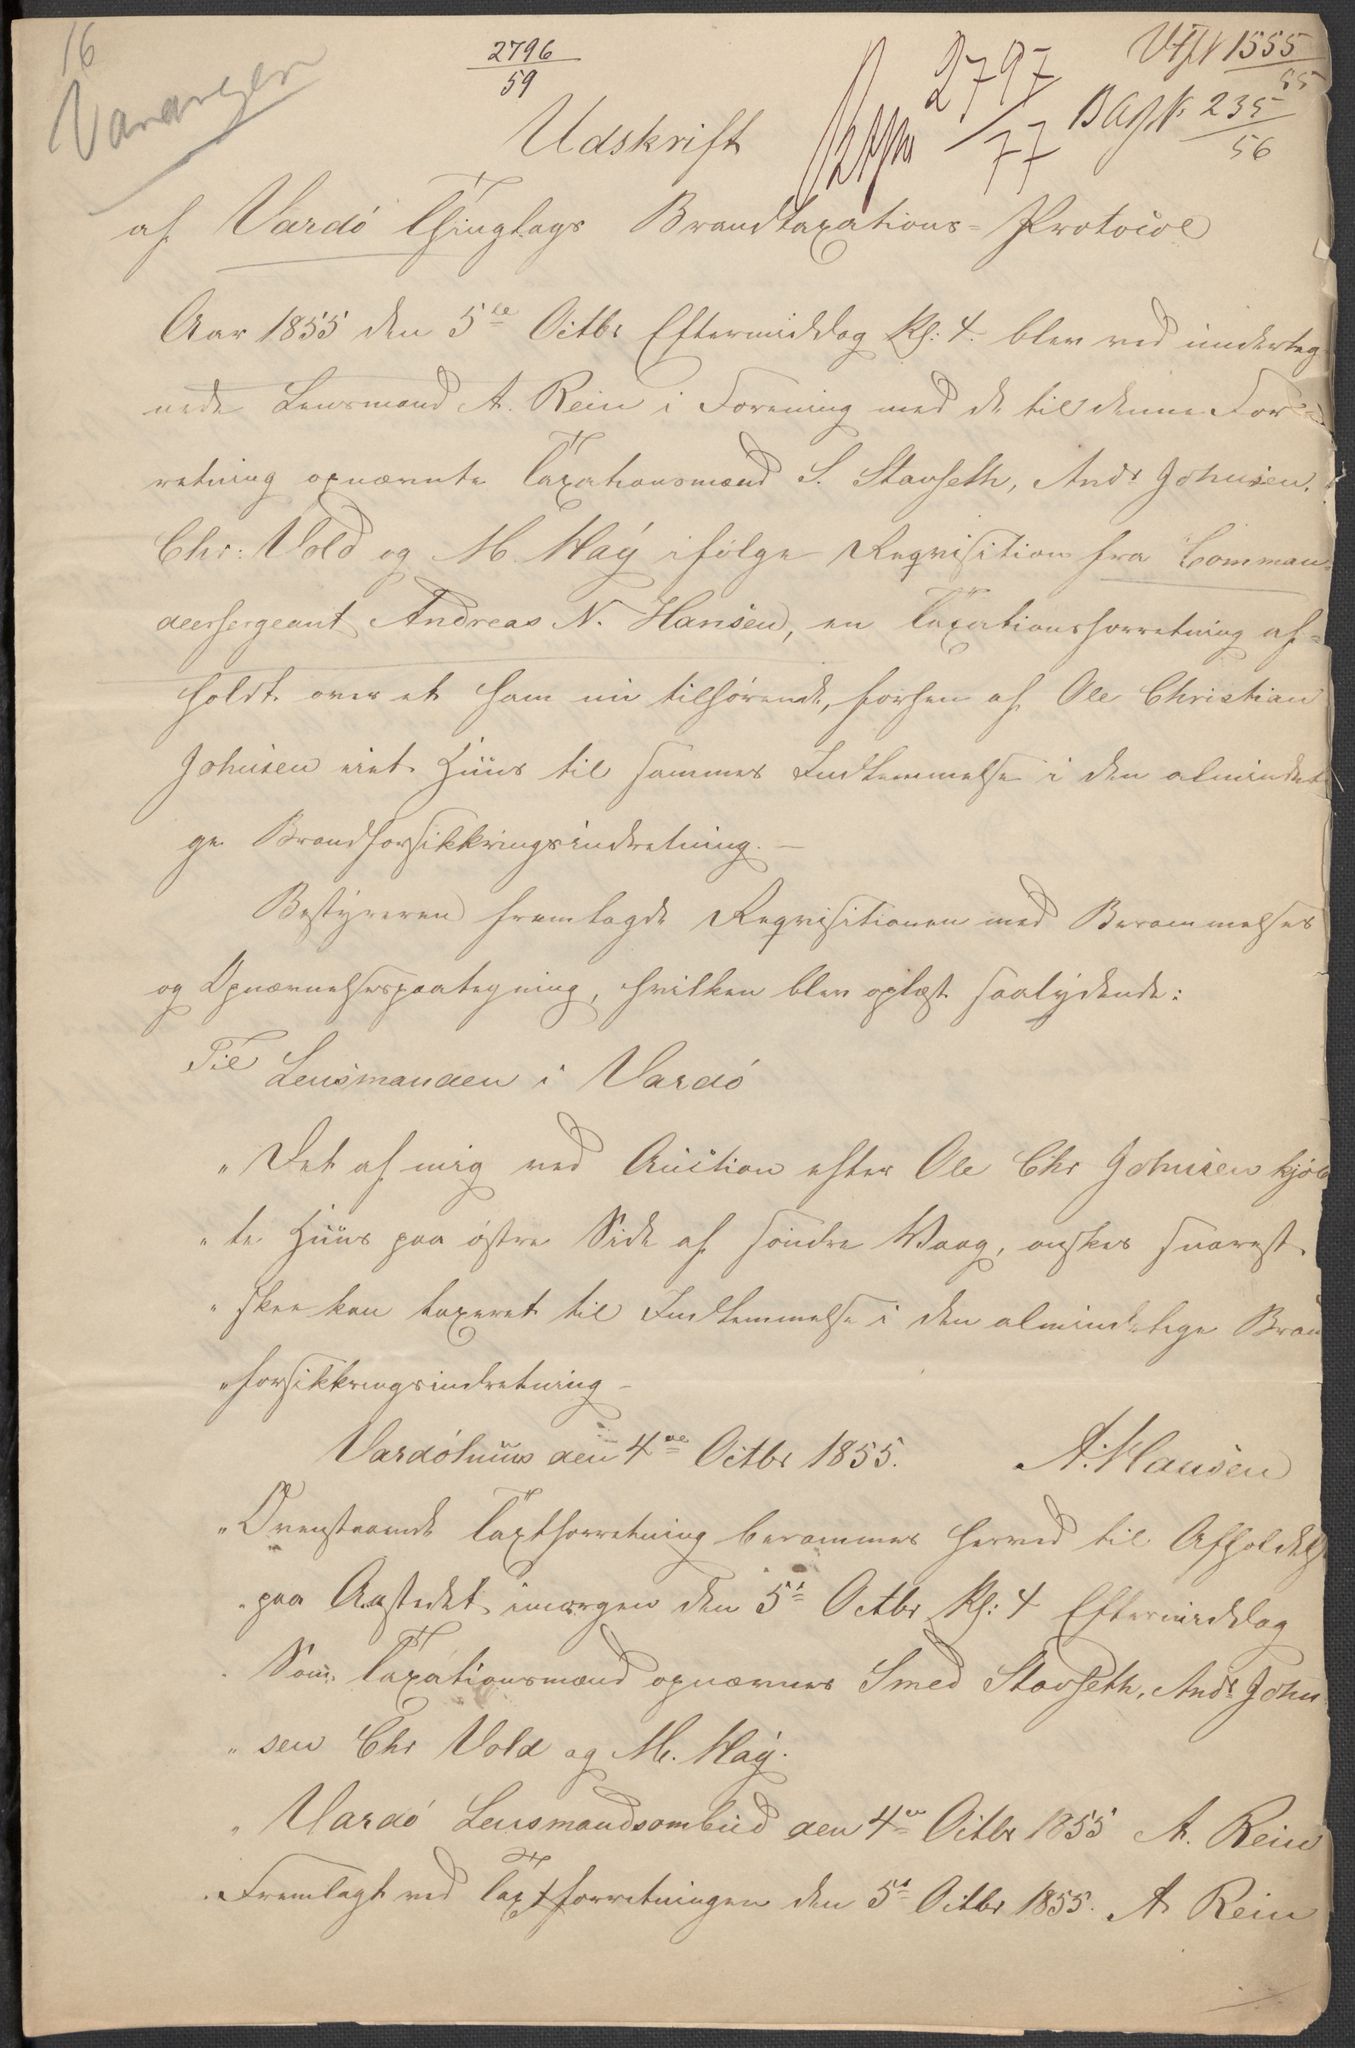 16
Varanger
2796
59
2797
77
1555
55
235
56
Udskrift
af Vardö Thinglags Brandtaxations-Protocol
Aar 1855 den 5te Octbr Eftermiddag Kl: 4. blev ved underteg
nede Lensmand A. Rein i Forening med de til denne For-
retning opnævnte Taxationsmænd S. Stavseth, Andr Johnsen,
Chr: Vold og M. May ifölge Reqvisition fra Comman-
deersergeant Andreas N. Hansen, en Taxationsforretning af-
holdt over et ham nu tilhörende, forhen af Ole Christian
Johnsen eiet Huus til sammes Indlemmelse i den almindeli
ge Brandforsikkringsindretning. -
Bestyreren fremlagde Reqvisitionen med Berammelses
og Opnævnelsespaategning, hvilken blev oplæst saalydende:
Til Lensmanden i Vardö
" Det af mig ved Auction efter Ole Chr Johnsen kjöb
" te Huus paa östre Side af söndre Vaag, önskes snarest
" skee kan taxeret til Indlemmelse i den almindelige Brand
" forsikkringsindretning -
Vardöhuus den 4de Octbr 1855. A. Hansen
" Ovenstaaende Taxtforretning berammes herved til Afholdelse
" paa Aastedet imorgen den 5te Octbr Kl: 4 Eftermiddag
" Som Taxationsmænd opnævnes Smed Stavseth, Andr John
" sen Chr Vold og M. May.
" Vardö Lensmandsombud den 4de Octbr 1855 A. Rein
" Fremlagt ved Taxtforretningen den 5te Octbr 1855. A Rein